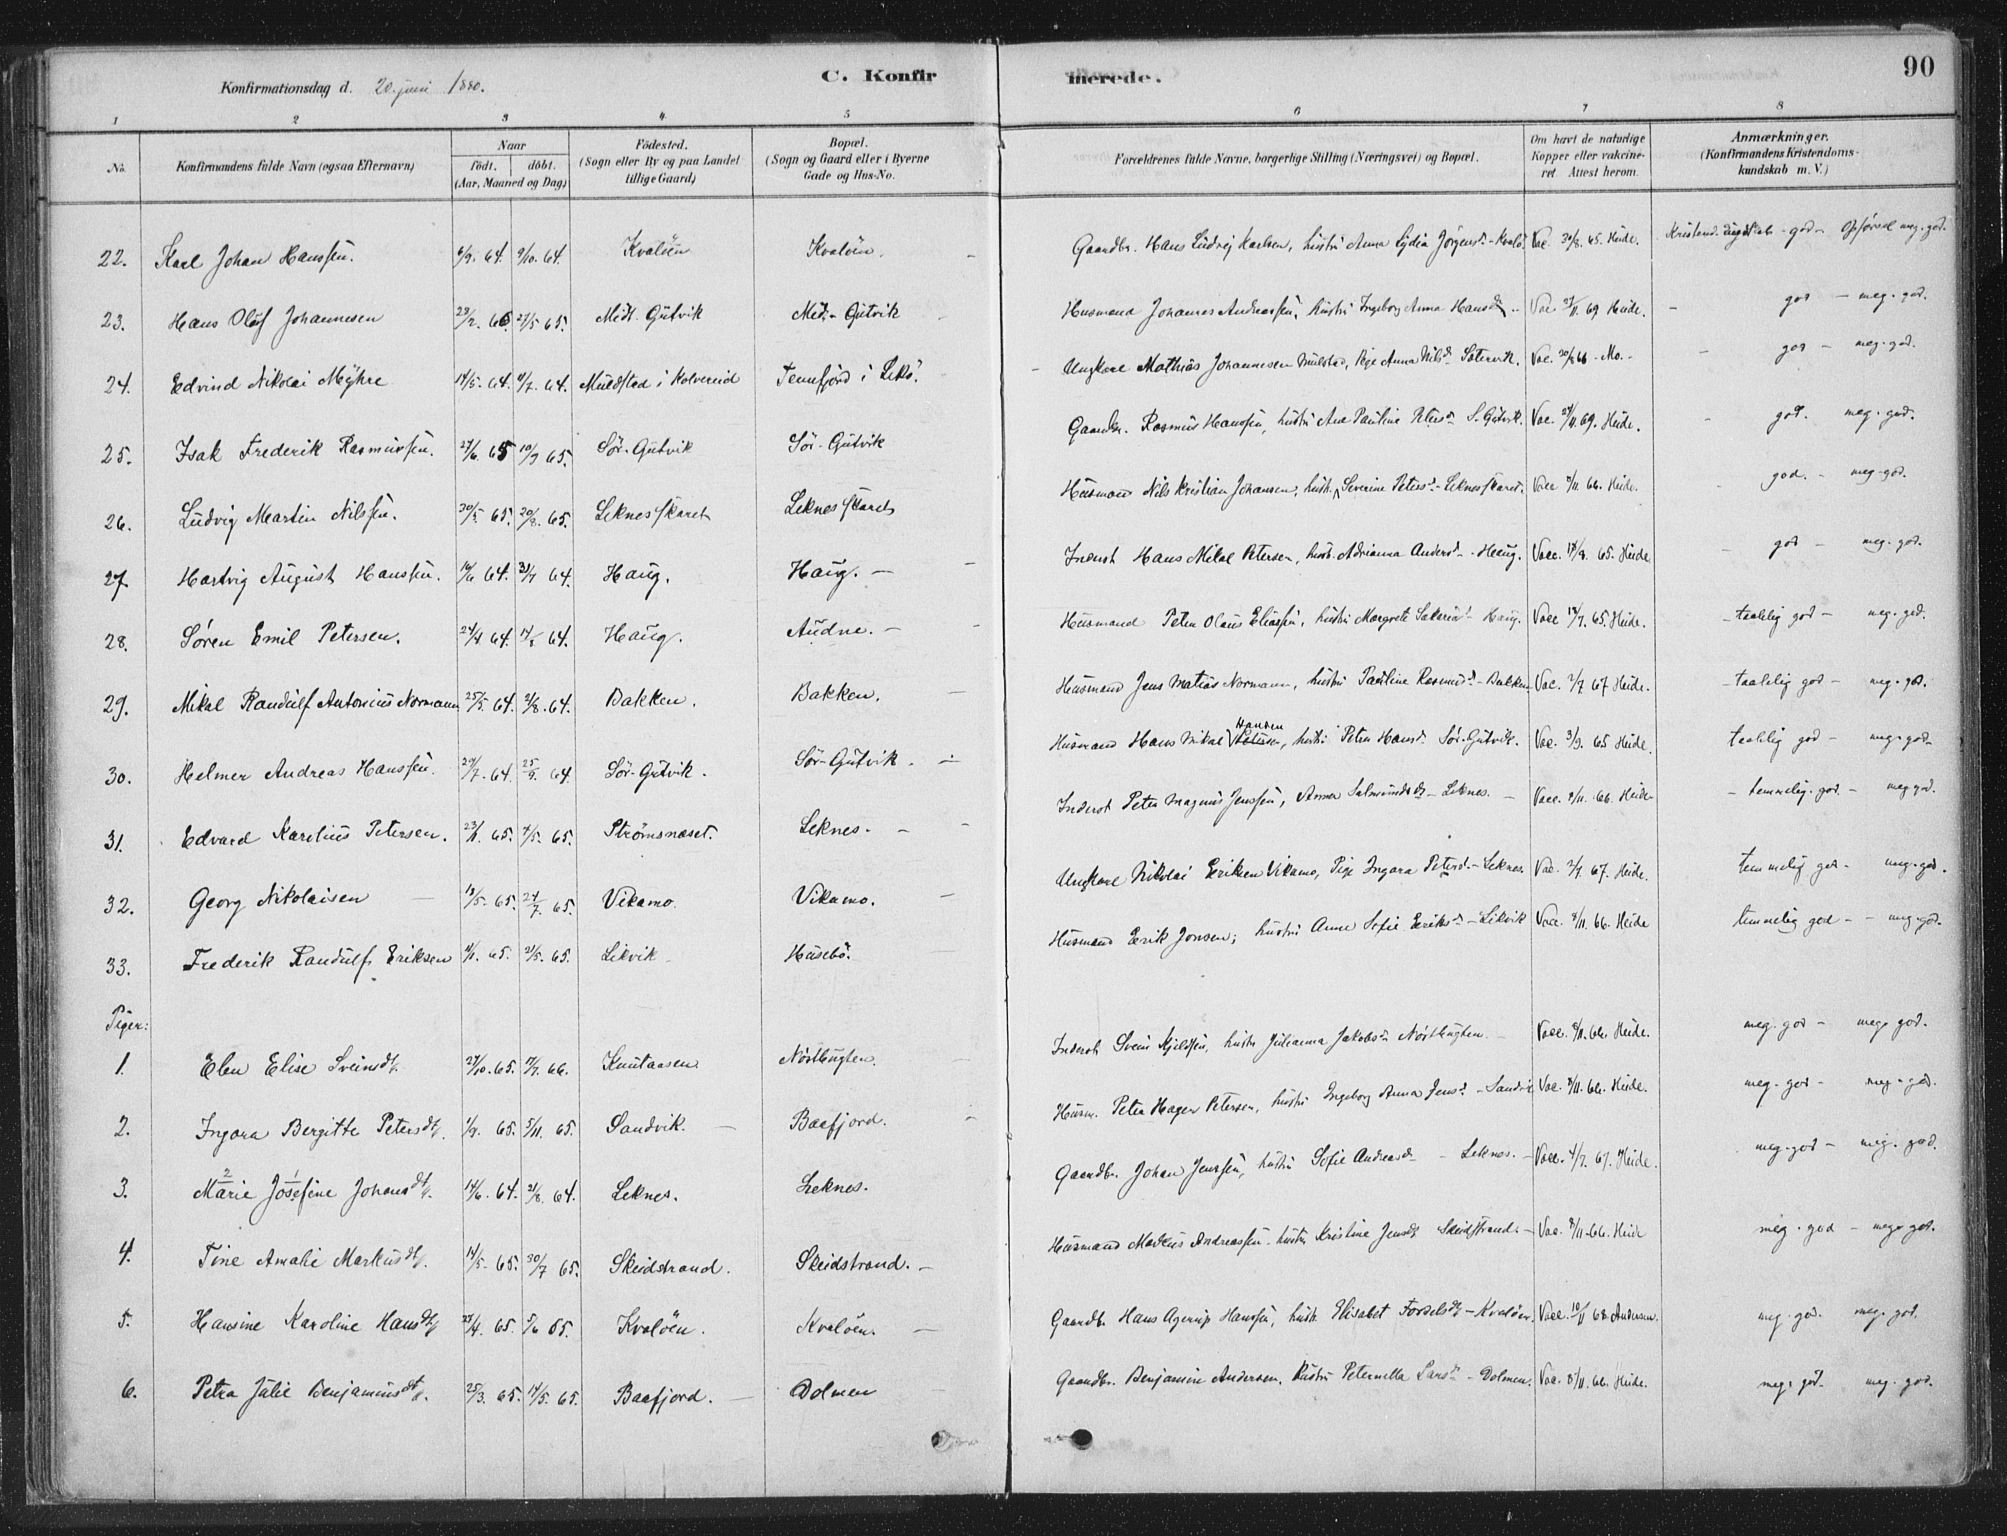 Konfirmationsdag d. 20. juni 1880. C. Konfirmerede. 90
1 2 3 4 5 6 7 8
No. Konfirmandens fulde Navn (ogsaa Efternavn) Naar födt. döbt. (Aar, Maaned og Dag) Födested. (Sogn eller By og paa Landet tillige Gaard) Bopæl. (Sogn og Gaard eller i Byerne Gade og Hus-No. Forældrenes fulde Navne, borgerlige Stilling (Næringsvei) og Bopæl. Om havt de naturlige Kopper eller vakcineret Attest herom. Anmærkninger. (Konfirmandens Kristendomskundskab m. V.)
22. Karl Johan Hanssen. 6/9. 64. 9/10. 64. Kvalöen Kvalöen. Gaardbr. Hans Ludvig Karlsen, hustru Anna Lydia Jörgensd. - Kvalö. Vac. 30/8. 65. Heide. god - Opförsel meg. god.
23. Hans Oluf Johannesen 23/2. 65. 27/5 65. Midt-Gutvik Midt-Gutvik Husmand Johannes Andreassen, hustru Ingeborg Anna Hansd. Vac. 69 Heide. god - meg. god.
24. Edvind Nikolai Myhre 14/5. 64. 11/7. 64. Muldstad i Kolvereid Tennfjord i Lekö. Ungkarl Mathias Johannesen Mulstad, Pige Anna Nilsd. Setervik. Vac. 20/8 66 - Mo. - god - meg. god.
25. Isak Frederik Rasmussen. 27/6. 65 10/9 65. Sör-Gutvik Sör-Gutvik Gaardbr. Rasmus Hanssen, hustru Ane Pauline Petersd. S. Gutvik. Vac. 27/11. 69. Heide. god. meg. god.
26. Ludvig Martin Nilssen. 30/5 65. 20/8. 65. Leknesskaret Leknesskaret Husmand Nils Kristian Johansen, hustr. Severine Petersd. - Leknesskaret. Vacc. 8/11. 66. Heide. god. - meg. god.
27 Hartvig August Hanssen. 19/6 64. 31/7 64. Haug. Haug. - Inderst Hans Mikal Petersen, hustr. Adrianna Andersd. - Haug. Vacc. 18/9. 65. Heide god - meg. god.
28. Sören Emil Petersen. 24/4 64. 17/5 64. Haug. Audne. - Husmand Peter Olaus Eliassen, hustru Margrete Sakariasd. Haug. Vacc. 13/7. 65. Heide. - taalelig god - meg. god.
29. Mikal Randulf Antonius Normann 25/5. 64. 21/8. 64. Bakken. Bakken. Husmand Jens Matias Normann, hustru Pauline Rasmusd. - Bakken Vac. 2/7 67 Heide. - taalelig god - meg. god.
30. Helmer Andreas Hanssen. 29/7. 64. 25/9. 64. Sör-Gutvik. Sör-Gutvik. - Husmand Hans Mikal Hansen, hustru Petra Hansd. Sör-Gutvik. Vac. 3/9. 65 Heide. taalelig god - meg. god -
31. Edvard Karelius Petersen. 23/1. 65. 4/5. 65. Strömsnæset. Leknes. - Inderst Peter Magnus Jenssen, Anna Salmundsd. - Leknes. - Vacc. 8/11. 66. Heide - temmelig. god - meg god.
32. Georg Nikolaisen 13/5. 65. 24/7. 65. Vikamo Vikamo. Ungkarl Nikolai Eriksen Vikamo, Pige Ingara Petersd. - Leknes. Vac. 2/7. 67. Heide. temmelig god - meg. god.
33. Frederik Randulf Eriksen 1/1. 65. 21/5. 65. Likvik Husebö. Husmand Erik Jonsen, hustru Anne Sofie Eriksd. - Likvik Vacc. 8/11. 66. Heide temmelig god - - meg. god.
Piger:
1. Elen Elise Sveinsdt. 27/10. 65. 7/7. 66. Knutaasen Nöstbugten. Inderst Svein Kjeldsen, hustr. Julianna Jakobsd. Nöstbugten. - Vacc. 8/11. 66. Heide. meg. god - meg. god.
2. Ingora Bergitte Petersdt. 1/9. 65. 5/11. 65. Sandvik. - Baafjord. Husm. Peter Hagen Petersen, hustru Ingeborg Anna Jensd. - Sandvik Vac. 8/11. 66. Heide. meg. god - meg. god.
3. Marie Josefine Johansdt. 14/6. 64. 21/8. 64. Leknes. Leknes. Gaardbr. Johan Jenssen, hustru Sofie Andreasd. - Leknes. - Vacc. 4/7. 67. Heide. meg. god - meg. god.
4. Tine Amalie Markusdt. 14/5. 65. 30/7 65. Skeidstrand. Skeidstrand. - Husmand Markus Andreassen. hustru Kristine Jensdt. Skeidstrand. - Vac. 8/11. 66. Heide meg. god - meg. god.
5. Hansine Karoline Hansdt. 23/4. 65. 5/6 65. Kvalöen. Kvalöen. - Gaardbr. Hans Agerup Hanssen, hustr. Elisabet Forselsdt. - Kvalöen. Vacc. 68 Andersen. meg. god. meg. god.
6. Petra Julie Benjaminsdt. 25/3. 65. 14/5. 65. Baafjord. - Dolmen Gaardbr. Benjamin Andersen, hustru Peternella Larsd. - Dolmen. Vac. 8/11. 66. Heide. meg. god. meg. god.